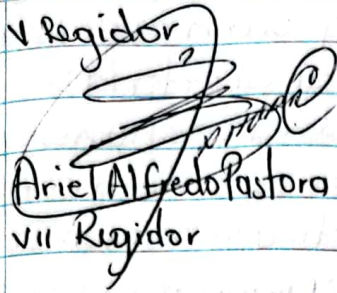 V Regidor
Ariel Alfredo Pastora
VII Regidor